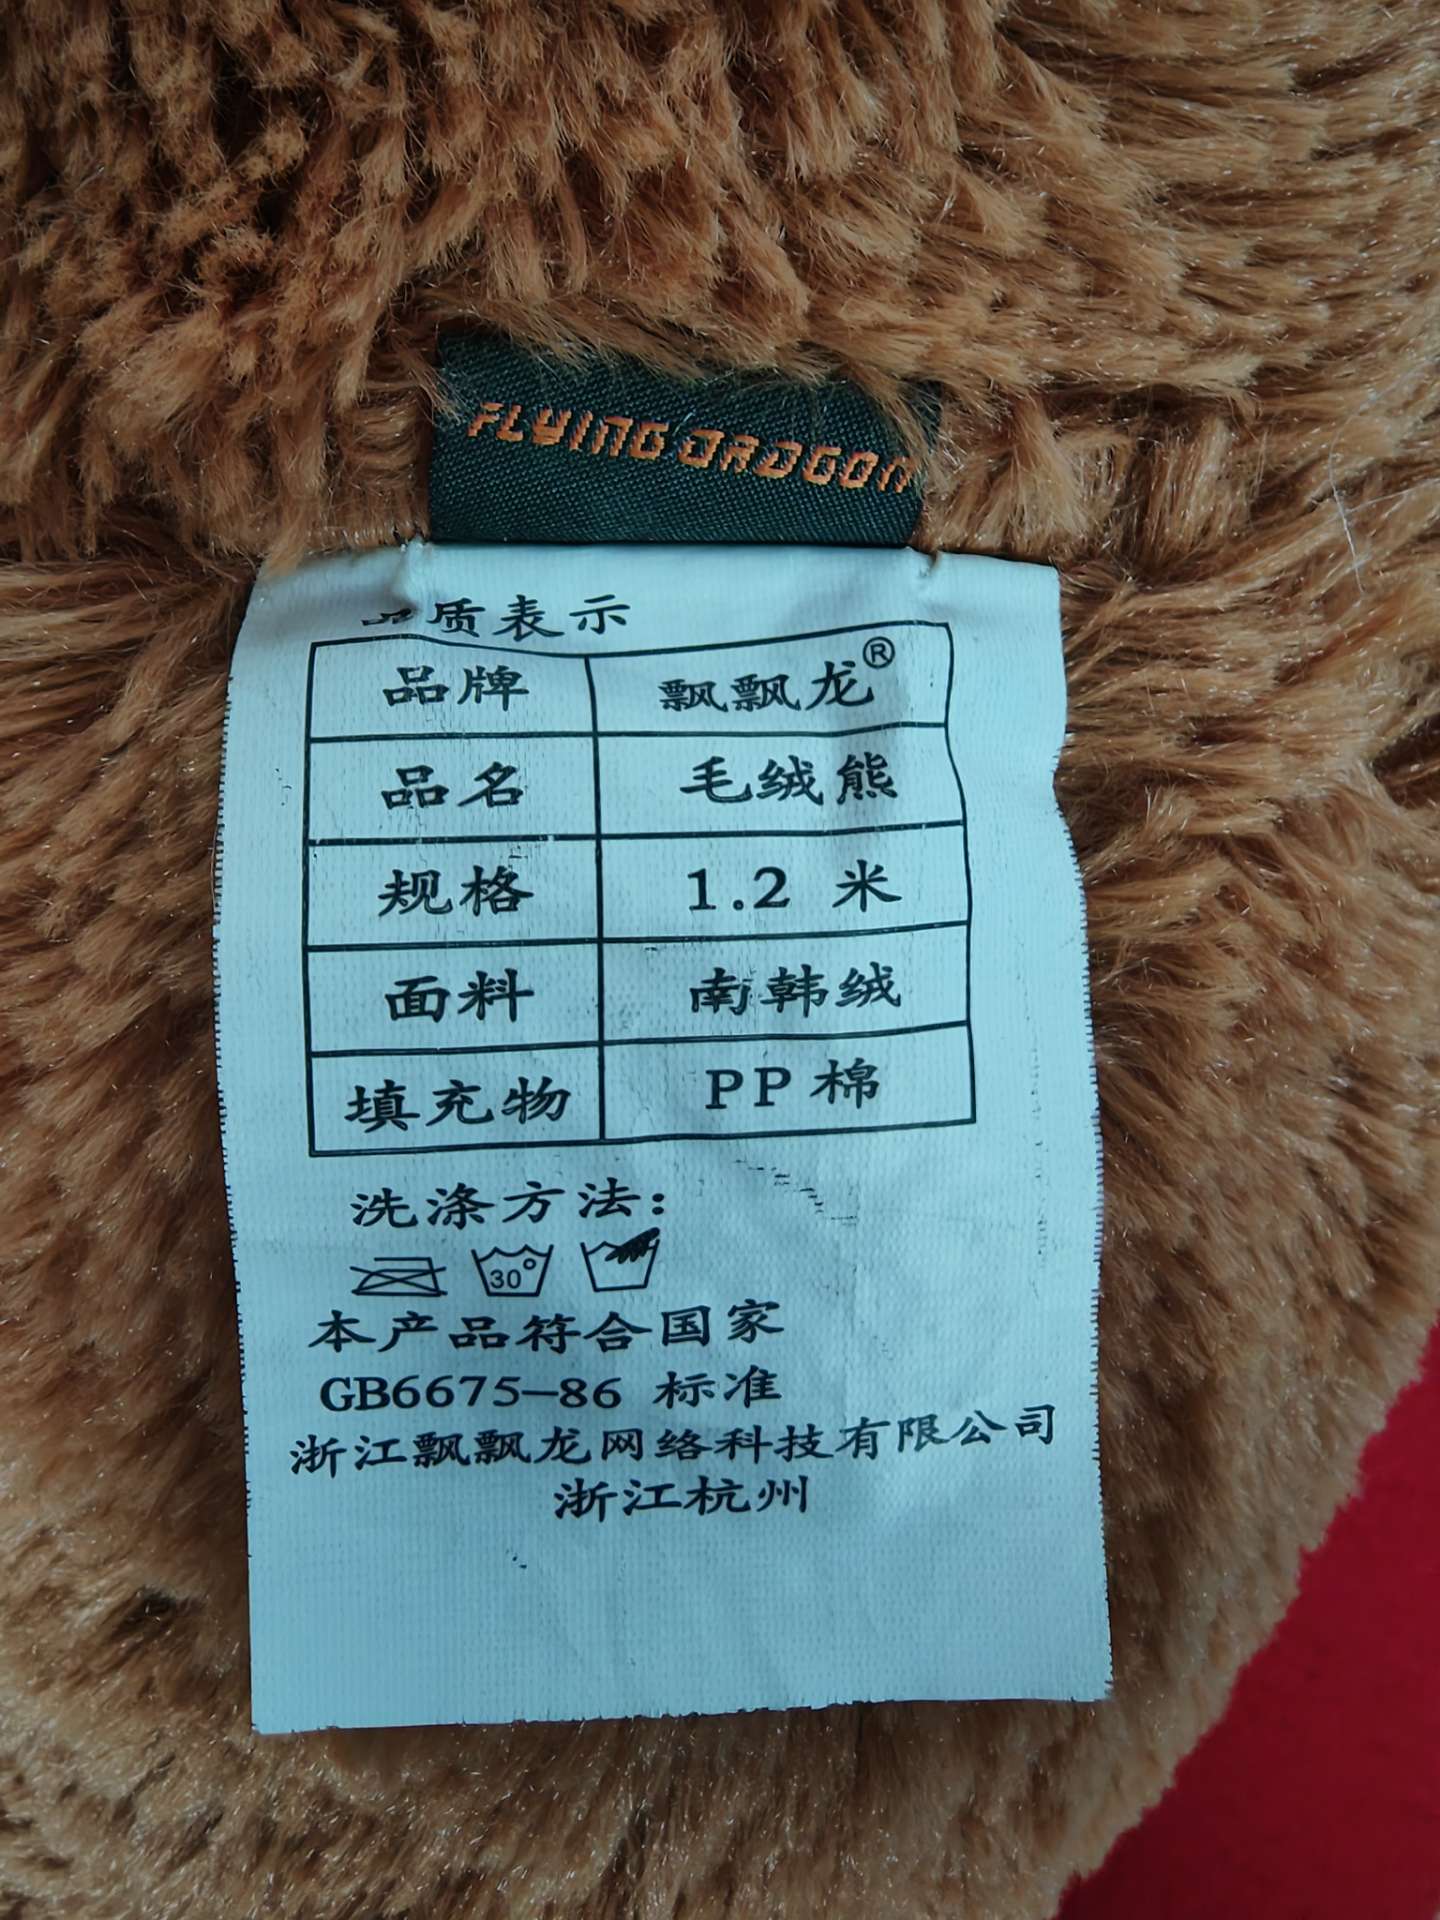 FLYING DRAGON
品质表示
品牌 飘飘龙®
品名 毛绒熊
规格 1.2 米
面料 南韩绒
填充物 PP棉
洗涤方法：
30°
本产品符合国家
GB6675-86 标准
浙江飘飘龙网络科技有限公司
浙江杭州